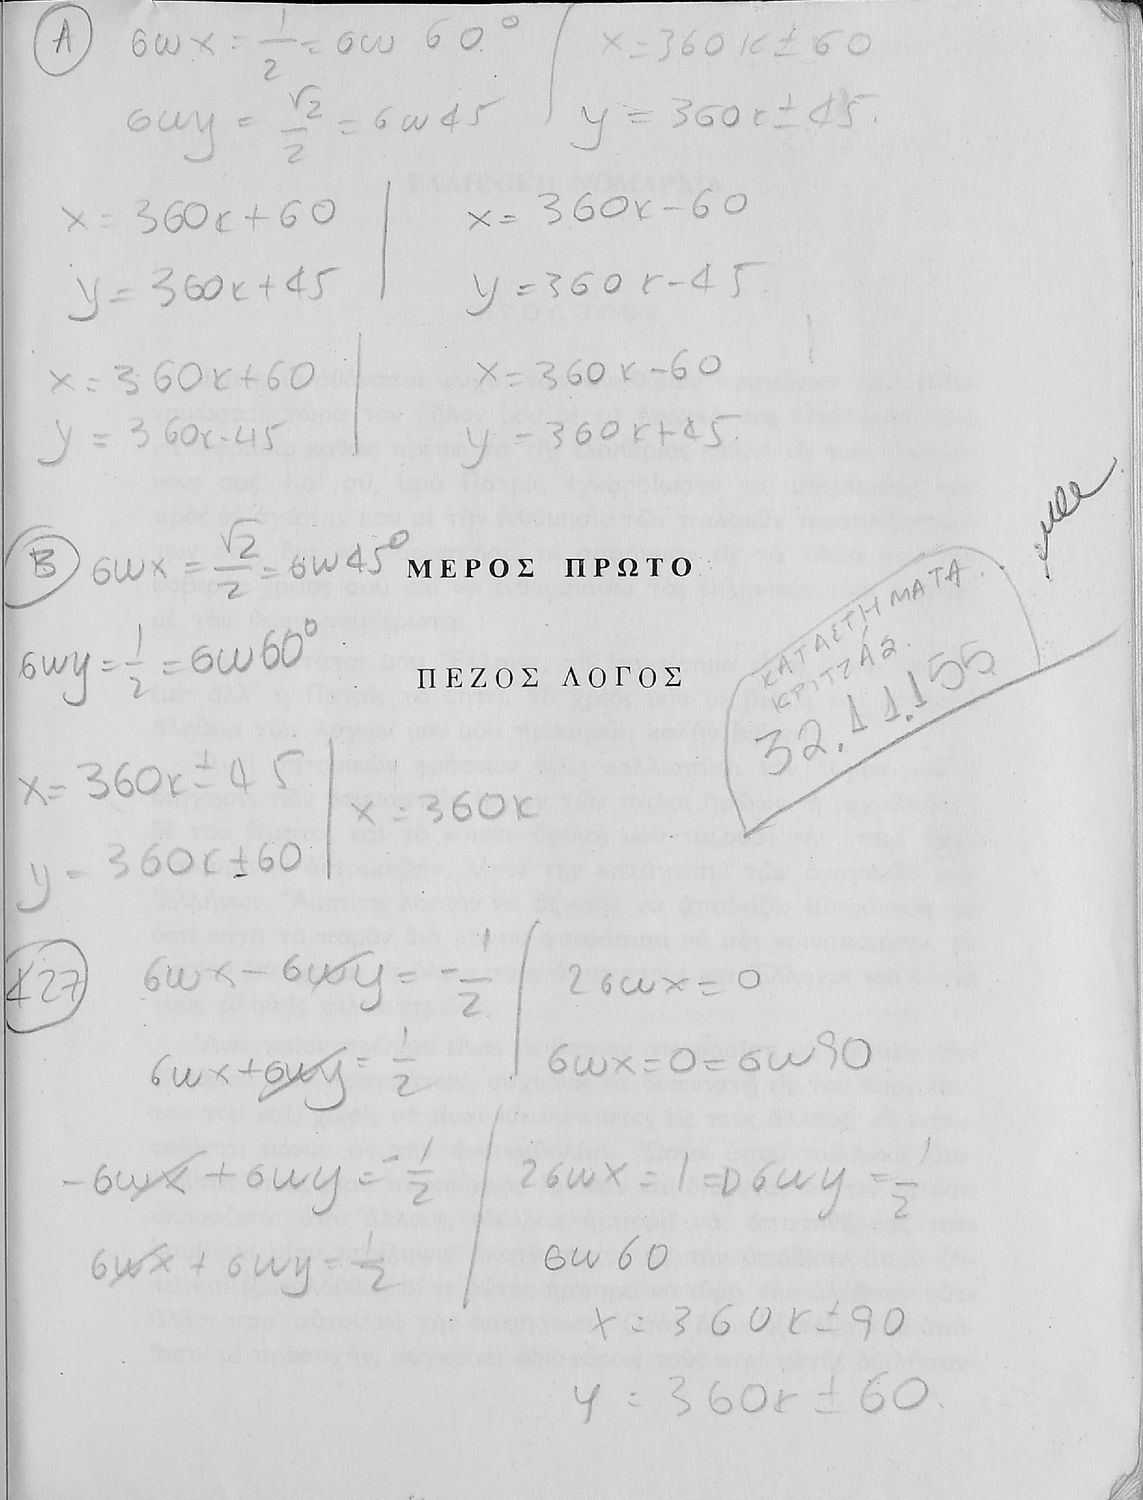 Α συνx = 1/2 = συν 60° x = 360κ ± 60
συνy = √2/2 = συν45 y = 360κ ± 45.
x = 360κ + 60 x = 360κ - 60
y = 360κ + 45 y = 360κ - 45.
x = 360κ + 60 x = 360κ - 60
y = 360κ - 45 y = 360κ + 45.
Β συνx = √2/2 = συν45°
ΜΕΡΟΣ ΠΡΩΤΟ
συνy = 1/2 = συν60°
ΠΕΖΟΣ ΛΟΓΟΣ
ΚΑΤΑΣΤΗΜΑΤΑ.
ΚΡΙΤΖΆΣ.
32.11.155
x = 360κ ± 45 x = 360κ
y = 360κ ± 60
127 συνx - συνy = -1/2 2συνx = 0
συνx + συνy = 1/2 συνx = 0 = συν90
-συνx + συνy = -1/2 2συνx = 1 => συνy = 1/2
συνx + συνy = 1/2 συν60
x = 360κ ± 90
y = 360κ ± 60.